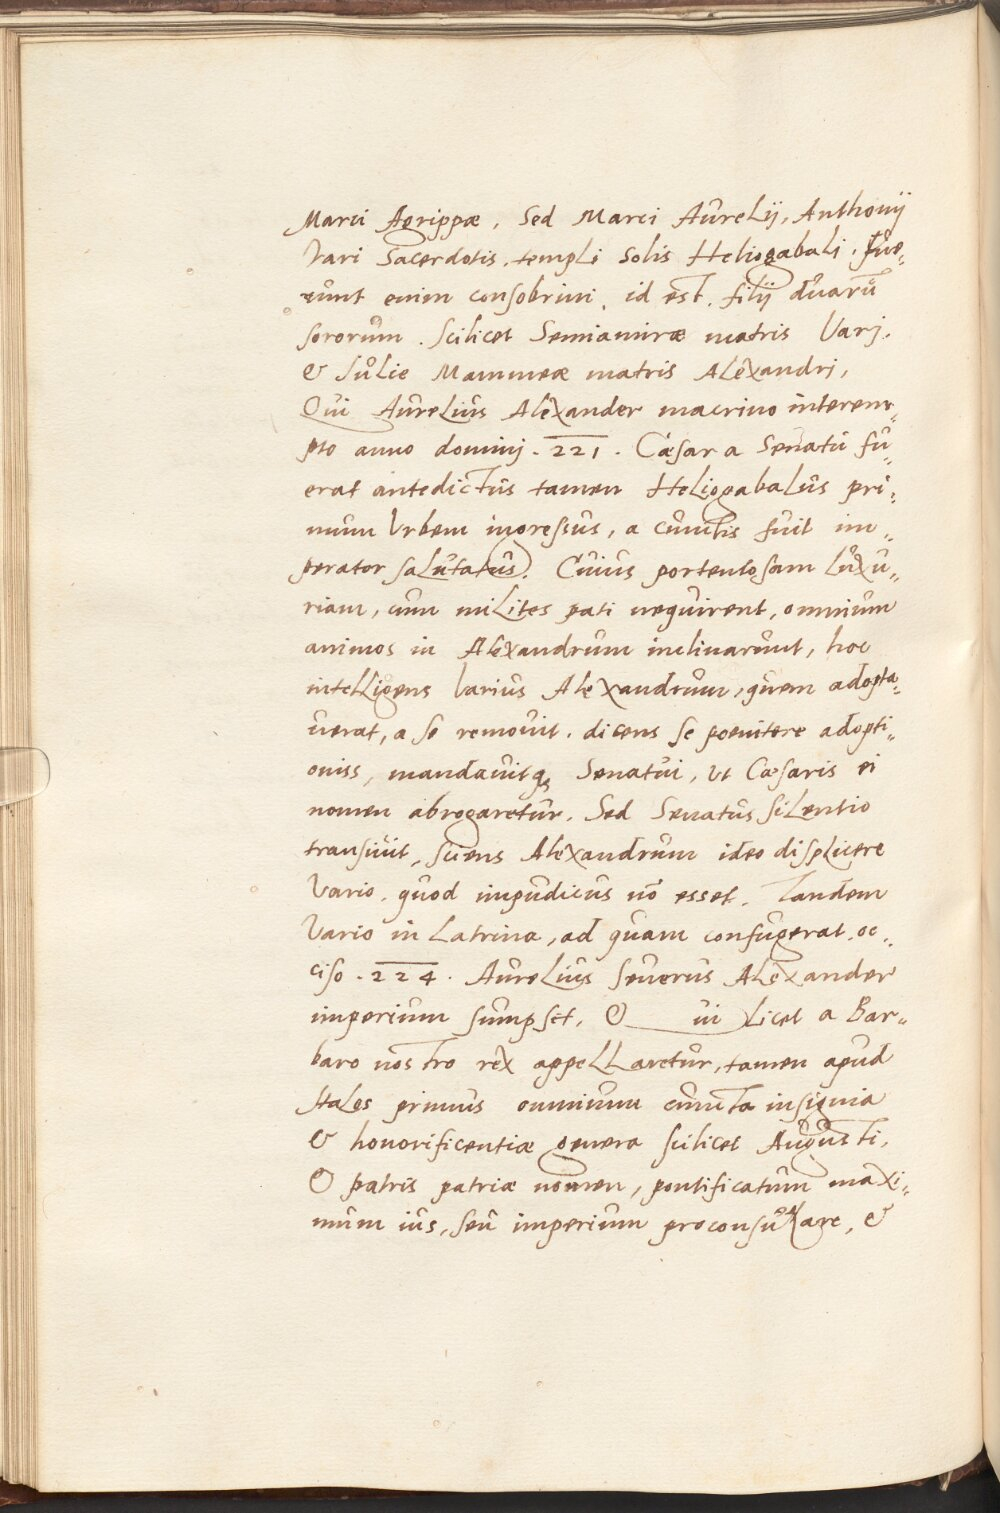 Marci Agrippæ, Sed Marci Aurelij, Anthonij
Vari Sacerdotis templi Solis Heliogabali. Fue„
runt enim consobrini, id est, filij duarū
sororum. Scilicet Semiamiræ matris Varj,
& Julie Mammeæ matris Alexandri,
Qui Aurelius Alexander macrino interem„
pto anno dominj. 221. Cæsar a Senatu fu„
erat antedictus tamen Heliogabalus pri„
mum Urbem ingressus, a cunctis fuit im„
perator salutatus. Cuius portentosam luxu„
riam, cum milites pati nequirent, omnium
animos in Alexandrum inclinarunt, hoc
intelligens Varius Alexandrum, quem adopta„
uerat, a se remouit. dicens se poenitere adopti„
oniss, mandauitq3 Senatui, ut Cæsaris ei
nomen abrogaretur. Sed Senatus silentio
transiuit, sciens Alexandrum ideo displicere
Vario, quod impudicus nō esset. Tandem
Vario in Latrina, ad quam confugerat, oc„
ciso. 224. Aurelius Seuerus Alexander
imperium sumpsit, & ui licet a Bar„
baro nostro rex appellaretur, tamen apud
Italos primus omnium cuncta insignia
& honorificentiæ genera scilicet Augusti,
& patris patriæ nomen, pontificatum maxi„
mum ius, seu imperium proconsulare, &